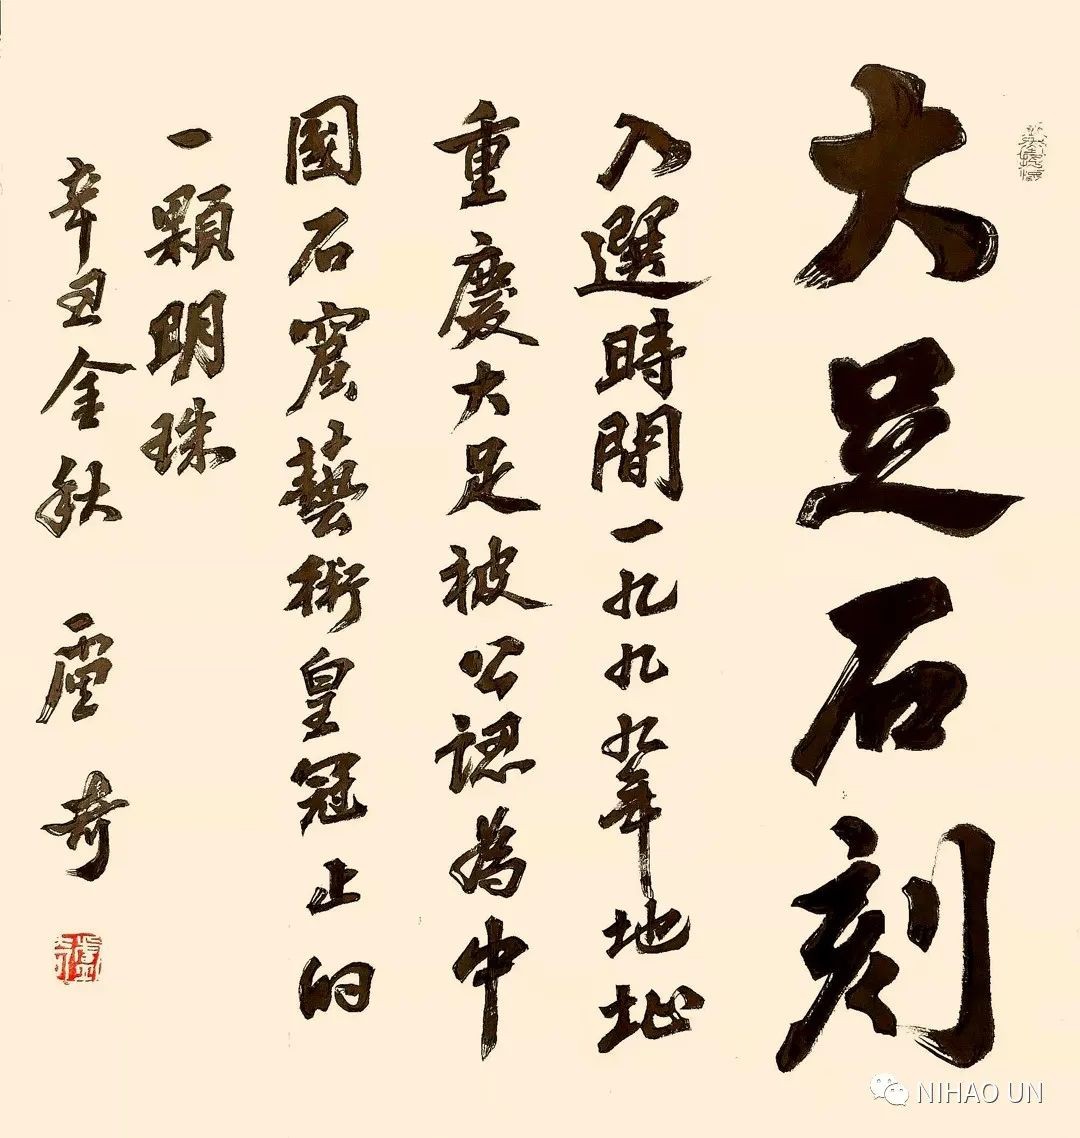 大足石刻
入選時間一九九九年地址
重慶大足被公認為中
國石窟藝術皇冠上的
一顆明珠
辛丑金秋 盧奇
NIHAO UN